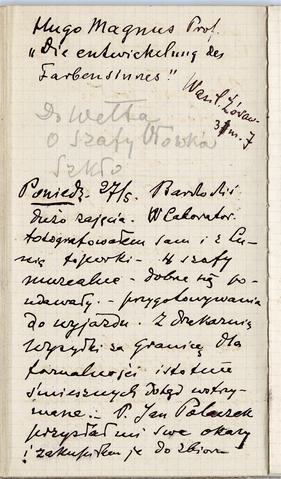 Hugo Magnus Prof.
„Die entwickelung des
Farbensinnes"
Wasil.
31 m. 7
Do Wełta
O Szafy Ołówka
Szkło
Poniedz. 27/5.
dużo zajęcia. W Laborator.
fotografowałem sam i z Lu-
nią - 4 szafy
muzealne - dobrze się po-
udawały. - przygotowywania
do wyjazdu. Z drukarnią
wysyłki za granicę dla
formalności istotnie
śmiesznych dotąd wstrzy-
mane. - P. Jan
przysłał mi swe okazy
i zakupiłem je do zbioru